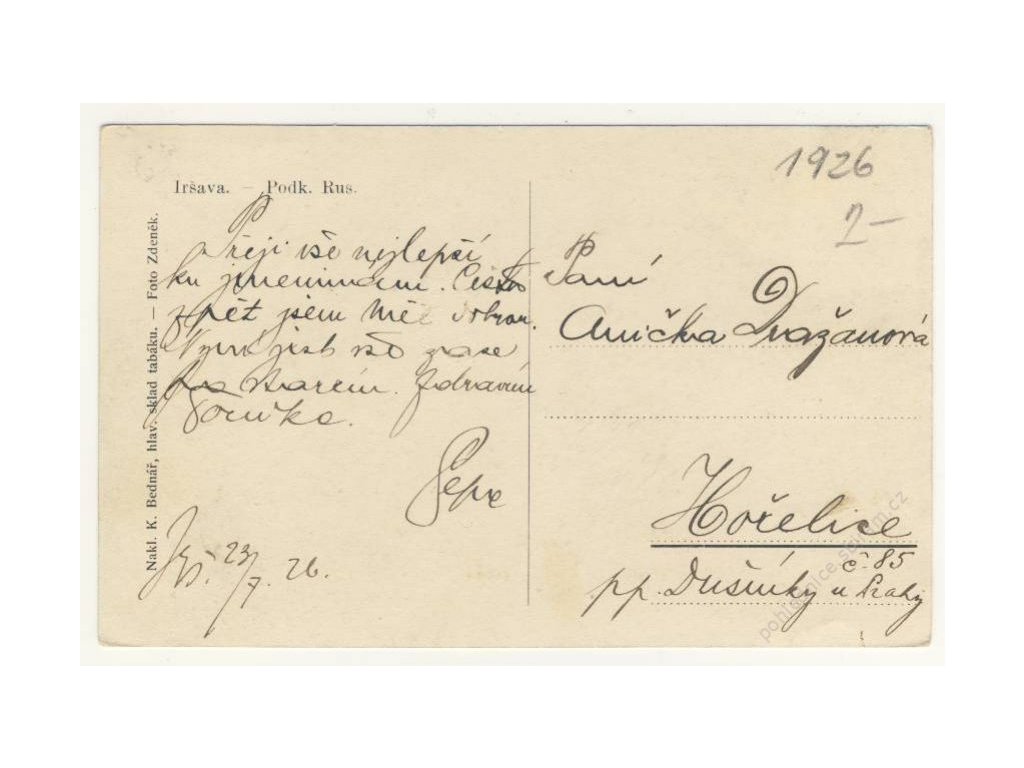 Iršava. — Podk. Rus.
Nakl. K. Bednář, hlav. sklad tabáku. — Foto Zdeněk.
1926
2—
Přeji vše nejlepší
ku jmeninám. Cestu
zpět jsem měl dobrou.
zase
Zdravím
Toníka.
Pepa
Irš. 23/7. 26.
Paní
Anička Dražanová
Hořelice
č. 85
pp. Dušníky u Prahy
pohlednice.sberatel.cz